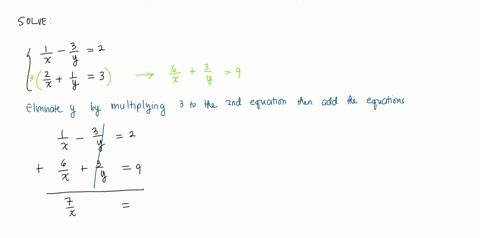 SOLVE:
1/x - 3/y = 2
3(2/x + 1/y = 3) → 6/x + 3/y = 9
Eliminate y by multiplying 3 to the 2nd equation then add the equations
1/x - 3/y = 2
+ 6/x + 3/y = 9
7/x =